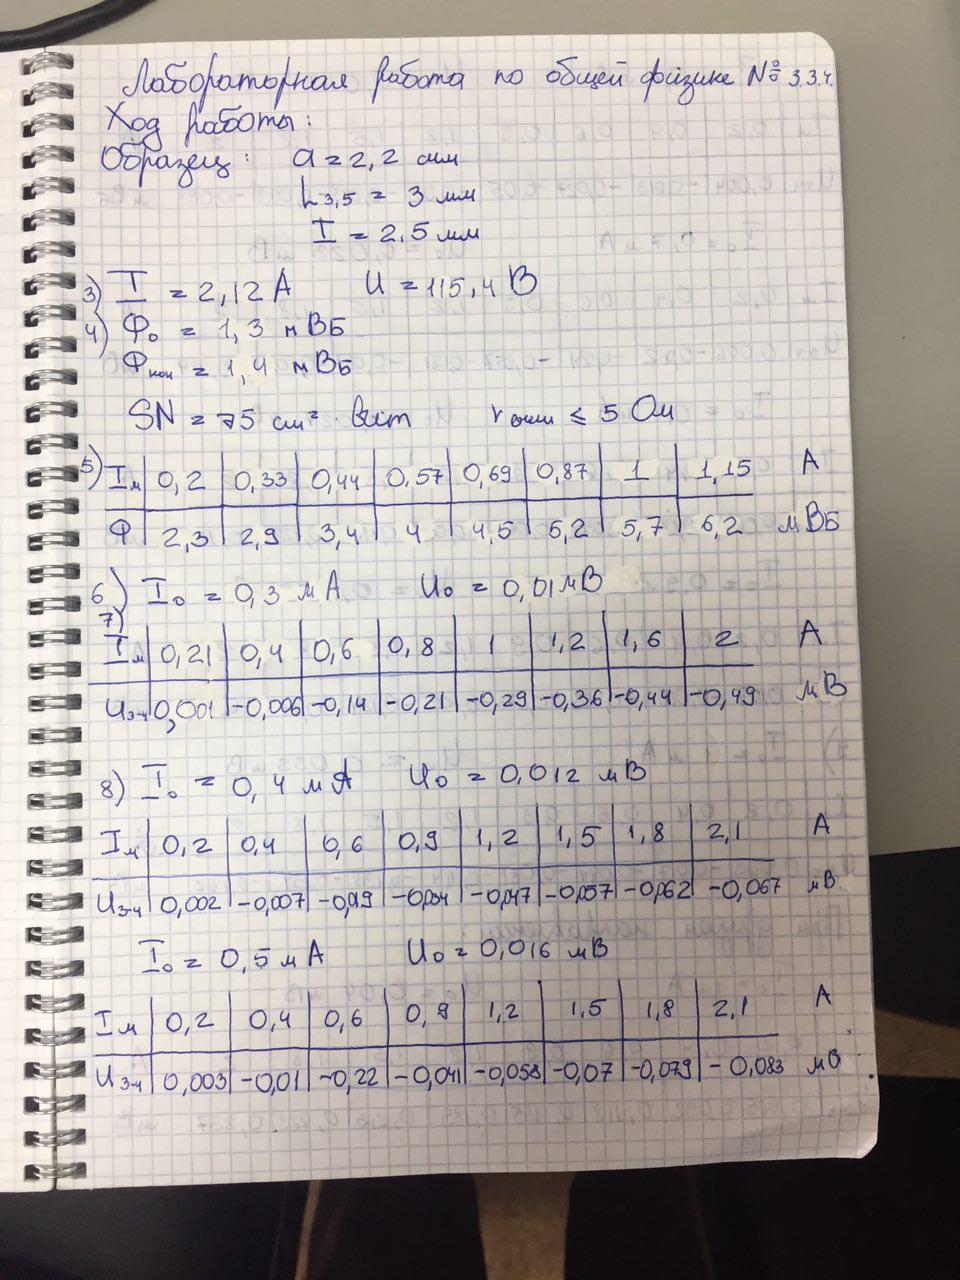 Лабораторная работа по общей физике № 3.3.4.
Ход работы:
Образец: a = 2,2 мм
L 3,5 = 3 мм
I = 2,5 мм
3) I = 2,12 А U = 115,4 В
4) Ф₀ = 1,3 мВб
Фкон = 1,4 мВб
SN = 75 см² · вит r ≤ 5 Ом
5) Iм | 0,2 | 0,33 | 0,44 | 0,57 | 0,69 | 0,87 | 1 | 1,15 А
Ф | 2,3 | 2,9 | 3,4 | 4 | 4,5 | 5,2 | 5,7 | 6,2 мВб
6) I₀ = 0,3 мА U₀ = 0,01 мВ
7)
Iм | 0,21 | 0,4 | 0,6 | 0,8 | 1 | 1,2 | 1,6 | 2 А
U3-4 | 0,001 | -0,006 | -0,14 | -0,21 | -0,29 | -0,36 | -0,44 | -0,49 мВ
8) I₀ = 0,4 мА U₀ = 0,012 мВ
Iм | 0,2 | 0,4 | 0,6 | 0,9 | 1,2 | 1,5 | 1,8 | 2,1 А
U3-4 | 0,002 | -0,007 | -0,19 | -0,034 | -0,047 | -0,057 | -0,062 | -0,067 мВ
I₀ = 0,5 мА U₀ = 0,016 мВ
Iм | 0,2 | 0,4 | 0,6 | 0,9 | 1,2 | 1,5 | 1,8 | 2,1 А
U3-4 | 0,003 | -0,01 | -0,22 | -0,041 | -0,058 | -0,07 | -0,079 | -0,083 мВ